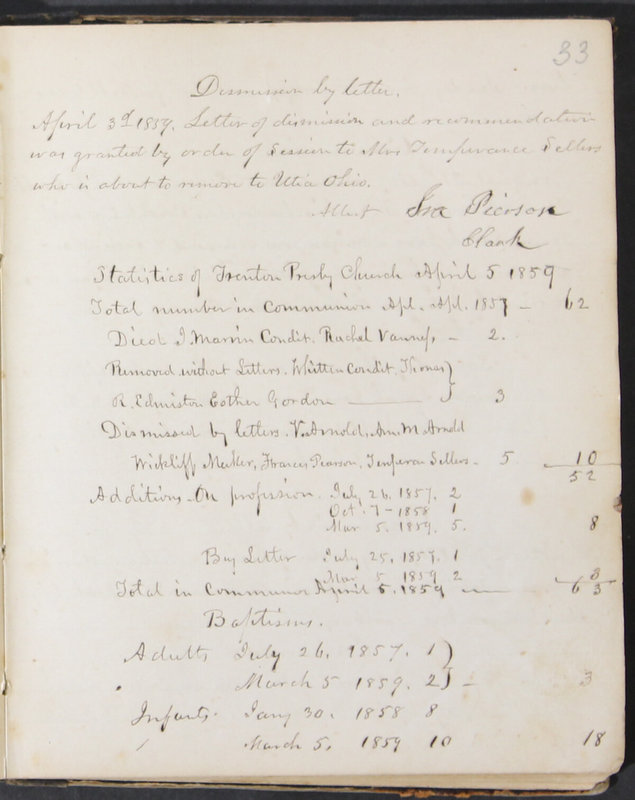 33
Dismission by letter.
April 3d 1859. Letter of dismission and recommendation
was granted by order of Session to Mrs Temperance Sellers
who is about to remove to Utica Ohio.
Attest Ira Pierson
Clark
Statistics of Trenton Presby Church April 5 1859
Total number in Communion Apl. Apl. 1857 — 62
Died J. Marvin Condit. Rachel Vanness — 2.
Removed without Letters. Whitten Condit, Thomas }
R. Edmiston Esther Gordon — 3
Dismissed by letters. V. Arnold, Ann. M Arnold
Wickliff Meeker, Frances Pearson, Temperan Sellers - 5 10
52
Additions On profession. July 26. 1857. 2
Oct. 7 - 1858 1
Mar 5. 1859. 5. 8
Buy Letter July 25. 1857. 1
Mar 5 1859 2 3
Total in Communion April 5. 1859 — 63
Baptisms.
Adults July 26. 1857. 1 )
March 5 1859. 2 ) — 3
Infants. Jany 30. 1858 8
March 5. 1859 10 18